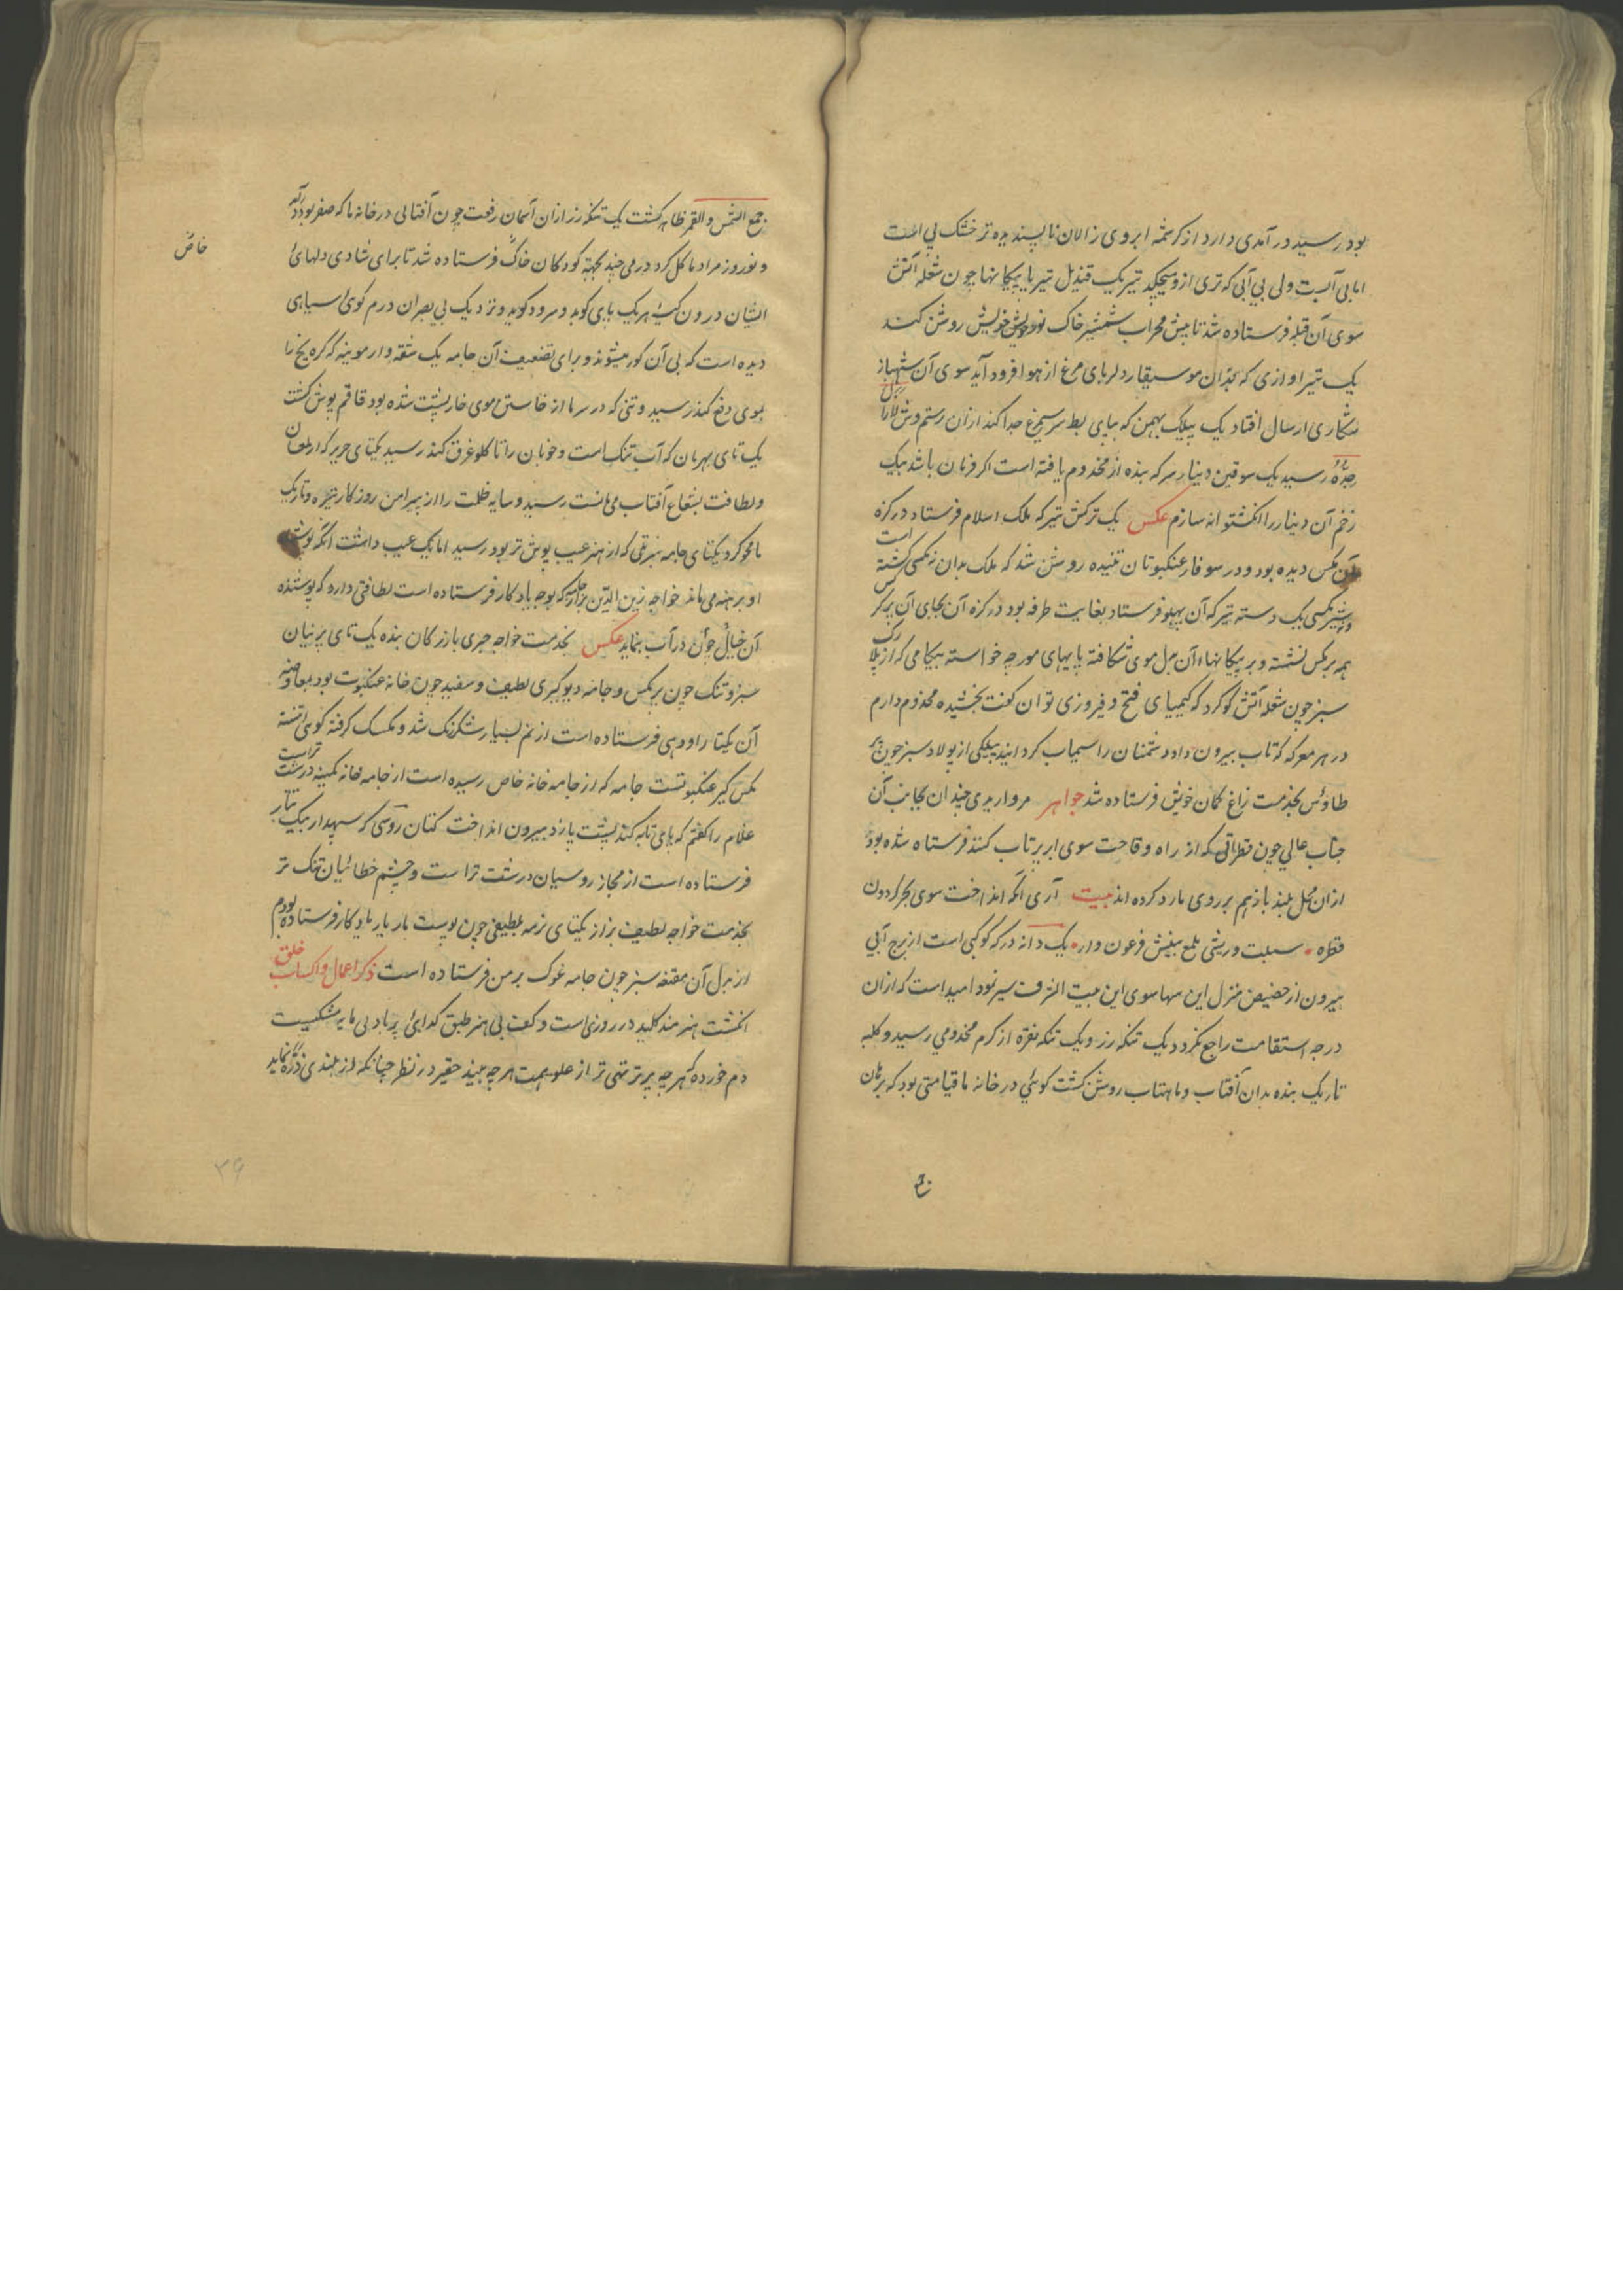 بود رسید در آمدی دارد از کرشمه ابروی زالان ناپسندیده تر خشک بی است
اما بی آبست ولی بی آبی که تری ازو میچکد تیر یک قندیل تیر با پیکانها چون شعله آتش
سوی آن قبله فرستاده شد تا پیش محراب شمشیر خاک نور خویش روشن کند
یک تیر اوازی که بدان موسیقار دلربای مرغ از هوا فرود آید سوی آن شهباز
شکاری ارسال افتاد یک بیلک بهمن که بپای بط سر سیمرغ جدا کند ازان رستم وش
رسید یک سوقین دینار سر که بنده از مخدوم یافته است اکر فرمان باشد بیک
زخم آن دینار را انکشتوانه سازم عکس یک ترکش تیر که ملک اسلام فرستاد در کزه
آن مکس دیده بود و در سوفار عنکبوتان تنیده روشن شد که ملک بدان نه مکسی کشته است
یک دسته تیر که آن پهلو فرستاد بغایت طرفه بود در کزه آن بجای آن پر کرکس
همه پر مکس نشسته و بر پیکانهاء آن بدل موی شکافته پایهای مورچه خواسته
سبز چون شعله آتش کوکرد که کیمیای فتح و فیروزی توان کفت بخشیده مخدوم دارم
در هر معرکه که تاب بیرون داد دشمنان را سیماب کردانید بیلکی از پولاد سبز چون پر
طاوس بخدمت زاغ کمان خویش فرستاده شد جواهر مرواریدی چندان بجانب آن
جناب عالی چون قطراتی که از راه وقاحت سوی ابر پرتاب کنند فرستاه شده بود
ازان محل بلند باز هم بر روی ما رد کرده اند بیت آری انکه انداخت سوی بحر کردون
قطره سبلت و ریشی بلمع بینش فرعون وار یک دانه در که کوکبی است از برج آبی
بیرون از حضیض منزل این سها سوی این بیت الشرف سیر نمود امید است که ازان
درجه استقامت راجع نکردد یک تنکه زر و یک تنکه نقره از کرم مخدومی رسید و کلبه
تاریک بنده بدان آفتاب و ماهتاب روشن کشت کوئی در خانه ما قیامتی بود که برهان
جمع الشمس والقمر ظاهر کشت یک تنکه زر ازان آسمان رفعت چون آفتابی در خانه ما که صفر بود در آمد
و نوروز مراد ما کل کرد درمی چند بجهة کودکان خاک فرستاده شد تا برای شادی دلهای
خاص
ایشان درون کیسه هر یک پای کوبد و سرود کوید و نزدیک بی بصران درم کوئ سیاهی
دیده است که بی آن کور میشوند و برای تضعیف آن جامه یک شقه وار موینه که کره یخ را
بموی دفع کند رسید و تنی که در سرما از خاستن موی خارپشت شده بود قاقم پوش کشت
یک تای بهرمان که آب تنک است و خوبان را تا کلو غرق کند رسید یکتای حریر که از لمعان
و لطافت بشعاع آفتاب می مانست رسید و سایه ظلمت را از پیرامن روزکار تیره و تاریک
ما محو کرد یکتای جامه که از هنر عیب پوش تر بود رسید اما یک عیب داشت انکه پوشنده
او برهنه می ماند خواجه زین الدین که بوجه یادکار فرستاده است لطافتی دارد که پوشنده
آن خیال چون در آب نماید عکس بخدمت خواجه جری بازرکان بنده یک تای پرنیان
سبز و تنک چون پر مکس و جامه دیوکیری لطیف و سفید چون خانه عنکبوت بود بمعاوضه
آن یکتا راودی فرستاده است از نم بسیار شکررنک شد و نمسک کرفته کوئی تنسته
مکس کیر عنکبوتست جامه که از جامه خانه خاص رسیده است از جامه خانه کمینه درشت تر است
غلام را کفتم که بهای تابه کند بپشت پا زد بیرون انداخت کتان روسی که سپهدار بیک تتار
فرستاده است از مجاز روسیان درشت تر است و چشم خطائیان تنک تر
بخدمت خواجه لطیف بزاز یکتای نرمه بلطیفی چون پوست مار یار یادکار فرستاده بودم
از بدل آن مقنعه سبز چون جامه غوک بر من فرستاده است ذکر اعمال و اکساب خلق
انکشت هنرمند کلید در روزی است و کف بی هنر طبق کدائی پر باد بی مایه مشکیست
دم خورده که هر چه پر تر تهی تر از علو همت هر چه بیند حقیر در نظر چنانکه از بلندی ذره نماید
۳۶